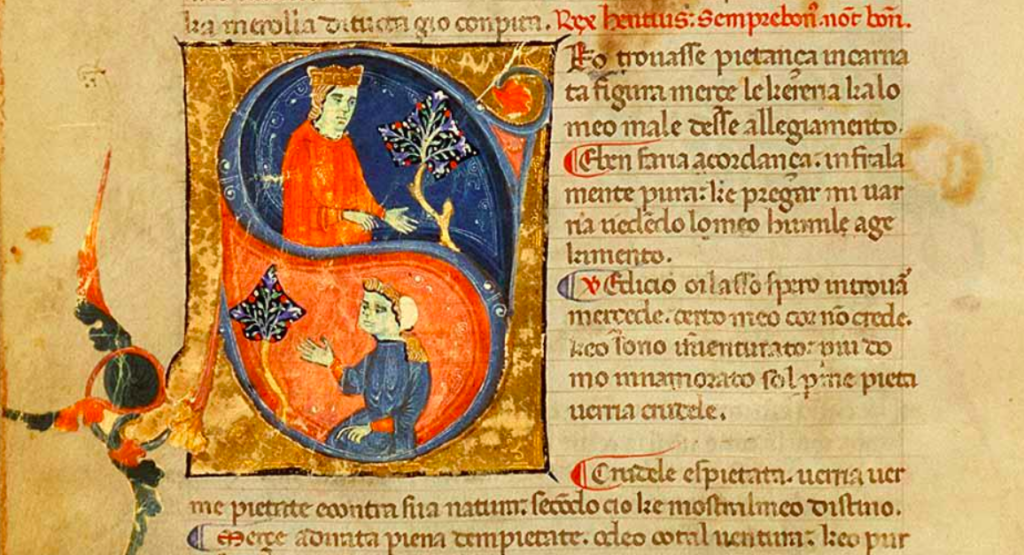 dituct gio conpita. Rex hentius: Semprebon̄. not̄ bon̄.
S Eo trouasse pietança incarna
ta figura merçe le kereria kalo
meo male desse allegiamento.
Eben faria acordança. infrala
mente pura: ke pregar mi uar
ria uedēdo lomeo humile age
kimento.
Edicio oilasso spero introuar̄
mercede. certo meo cor nō crede.
keo sono isuenturato: piu do
mo innamorato sol p me pieta
uerria crudele.
Crudele espietata. uerria uer
me pietate econtra sua natura: secōdo cio ke mostrailmeo distino.
Merçe adirata piena dempietate. odeo cotal uentura: keo pur